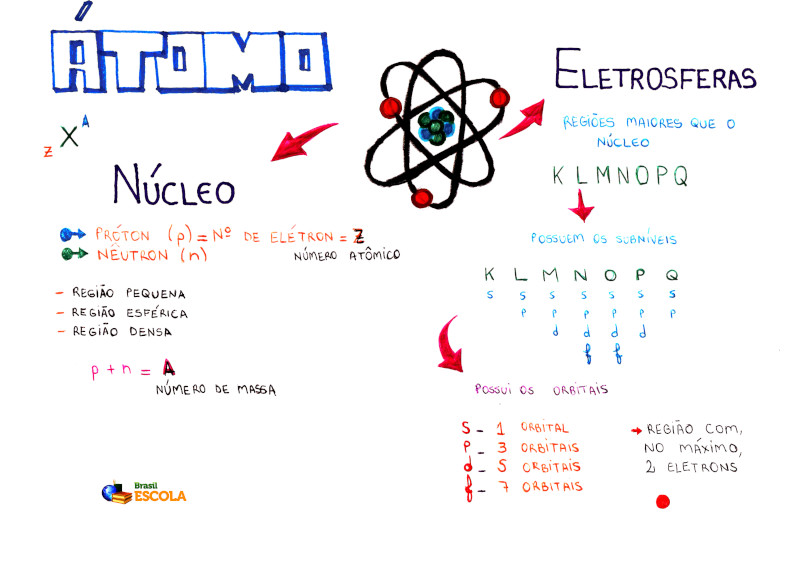 ÁTOMO
Z X A
NÚCLEO
PRÓTON (p) = Nº DE ELÉTRON = Z
NÚMERO ATÔMICO
NÊUTRON (n)
- REGIÃO PEQUENA
- REGIÃO ESFÉRICA
- REGIÃO DENSA
p + n = A
NÚMERO DE MASSA
Brasil
ESCOLA
ELETROSFERAS
REGIÕES MAIORES QUE O
NÚCLEO
K L M N O P Q
POSSUEM OS SUBNÍVEIS
K L M N O P Q
s s s s s s s
p p p p p p
d d d d
f f
POSSUI OS ORBITAIS
S - 1 ORBITAL
P - 3 ORBITAIS
d - 5 ORBITAIS
f - 7 ORBITAIS
REGIÃO COM,
NO MÁXIMO,
2 ELETRONS